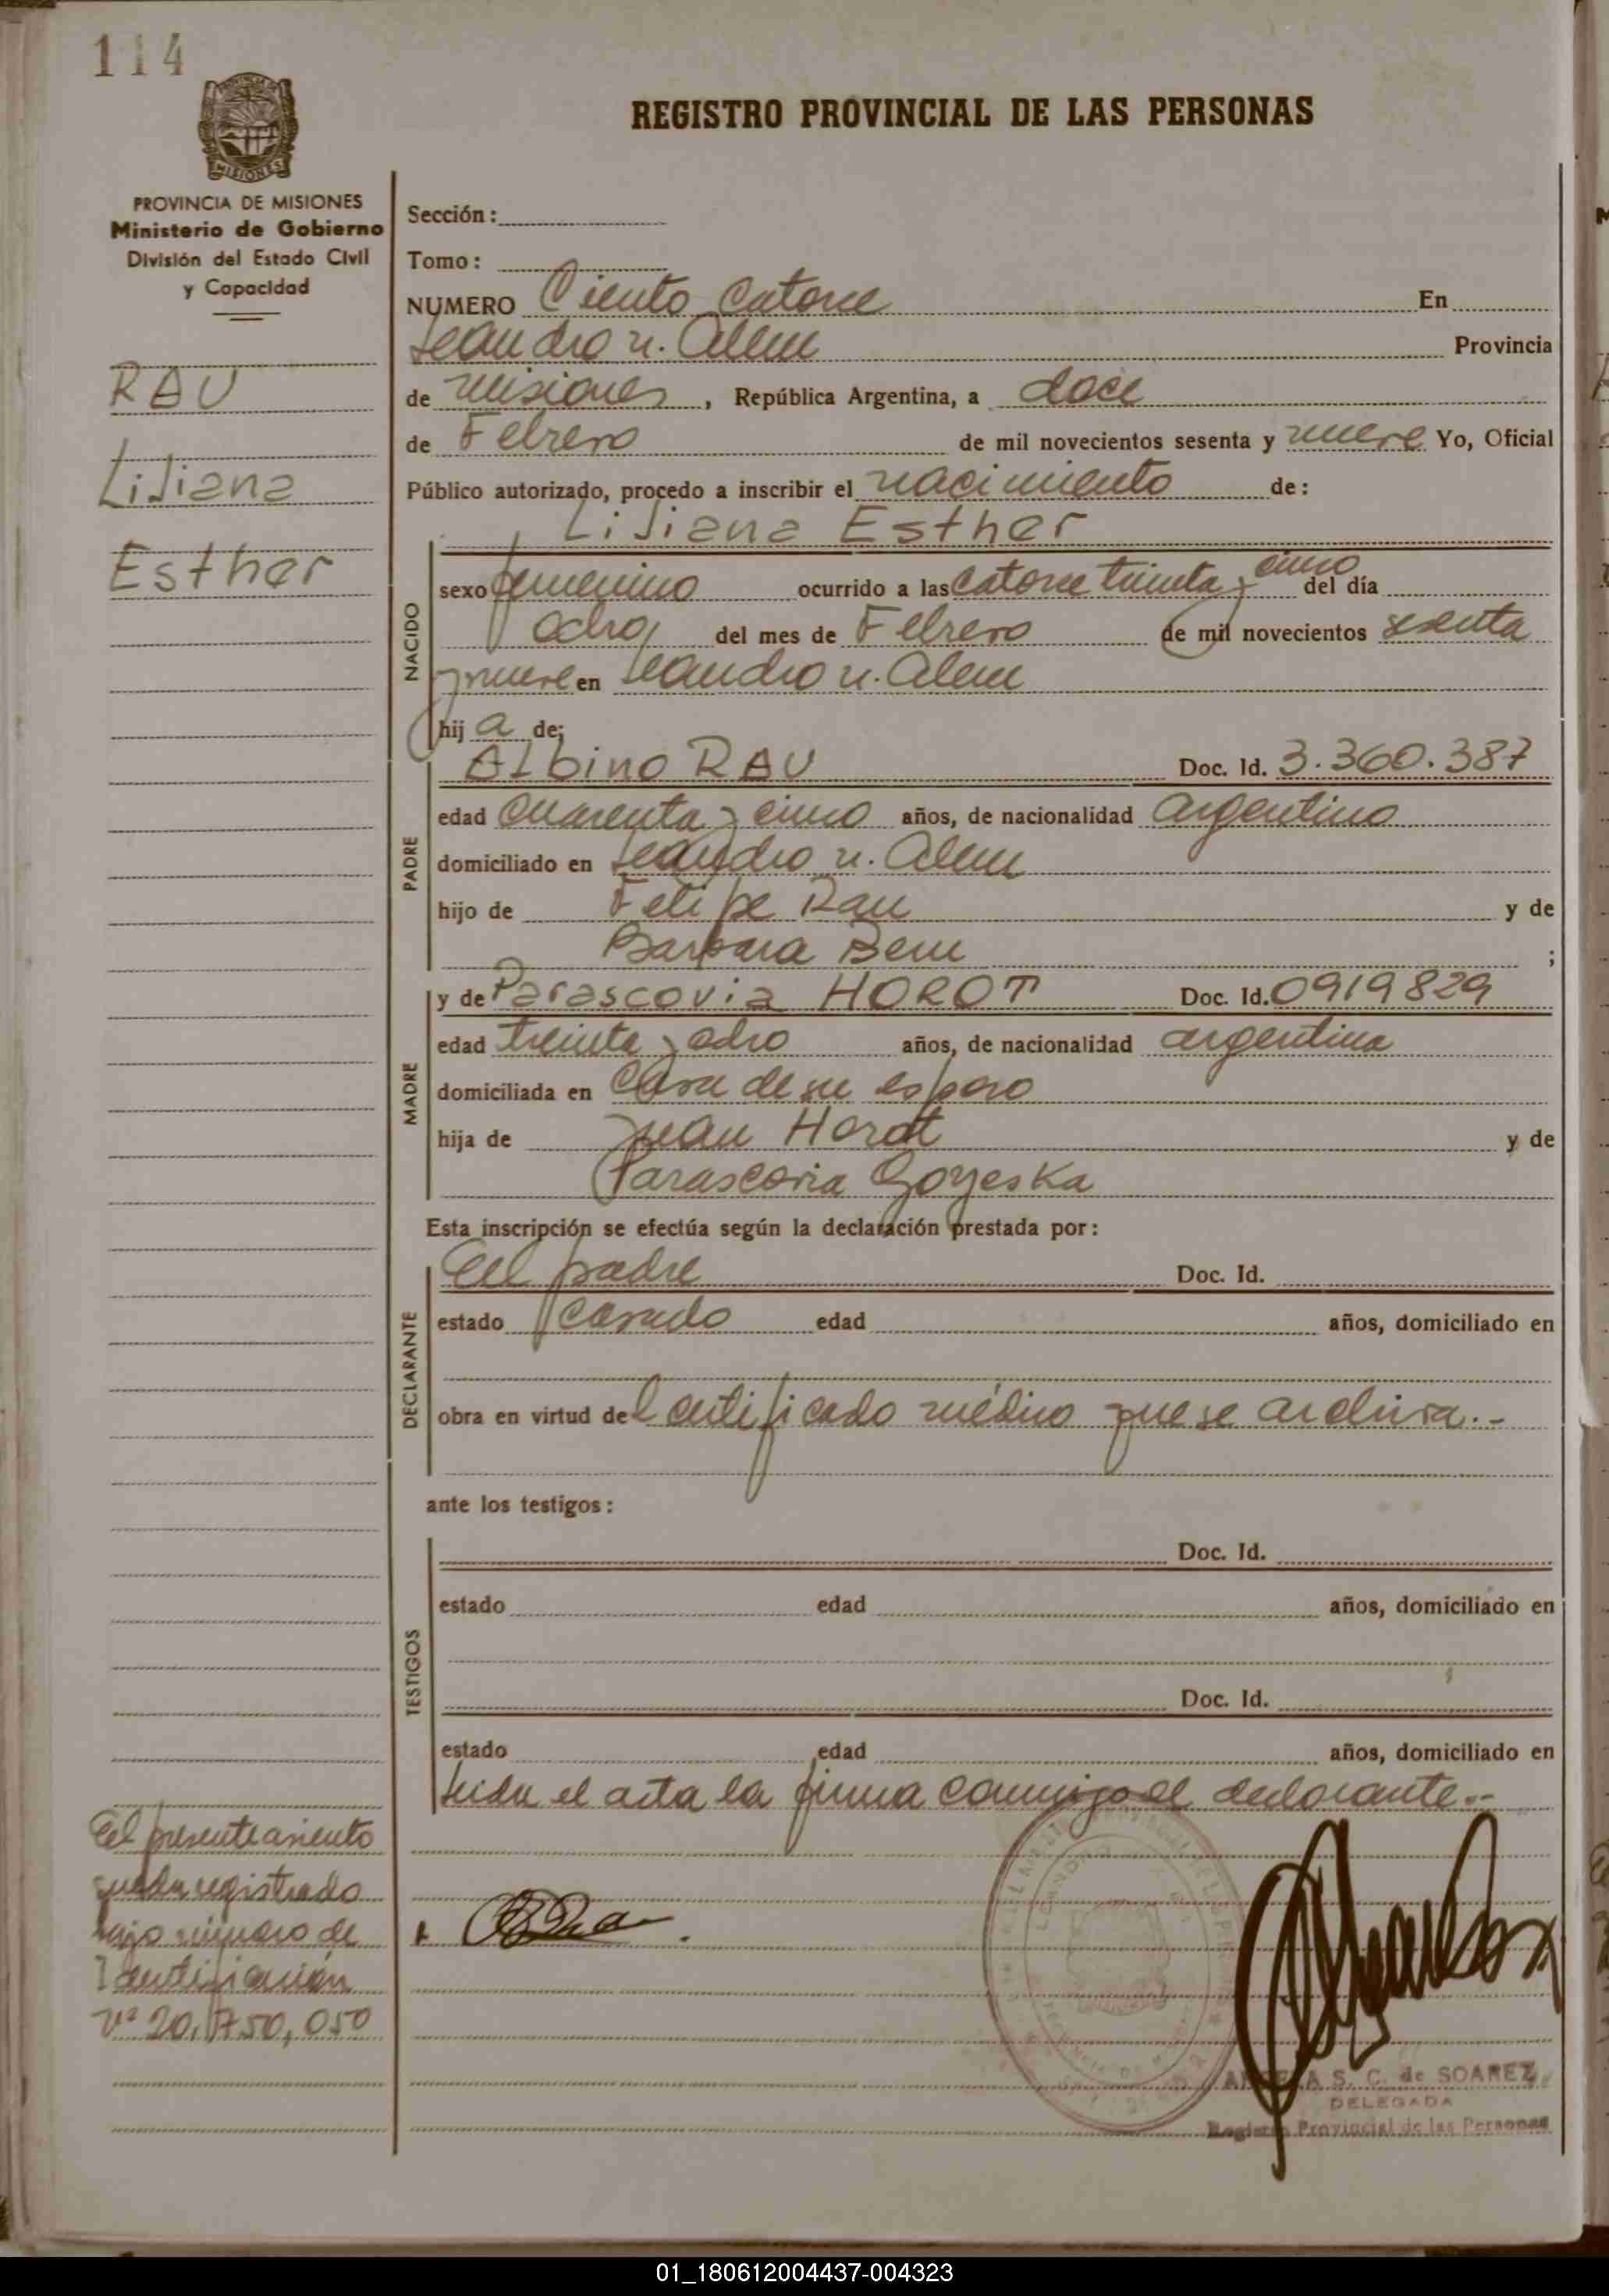 114
PROVINCIA DE MISIONES
Ministerio de Gobierno
División del Estado Civil
y Capacidad
RAU
Liliana
Esther
REGISTRO PROVINCIAL DE LAS PERSONAS
Sección:
Tomo:
NUMERO Ciento Catorce En
Leandro N. Alem Provincia
de Misiones, República Argentina, a doce
de Febrero de mil novecientos sesenta y nueve Yo, Oficial
Público autorizado, procedo a inscribir el nacimiento de:
Liliana Esther
NACIDO
sexo femenino ocurrido a las catorce treinta y cinco del día
ocho del mes de Febrero de mil novecientos sesenta
y nueve en Leandro N. Alem
hija de;
PADRE
Albino RAU Doc. Id. 3.360.387
edad cuarenta y cinco años, de nacionalidad argentino
domiciliado en Leandro N. Alem
hijo de Felipe Rau y de
Barbara Bem ;
MADRE
y de Parascovia HOROT Doc. Id. 0919829
edad treinta y ocho años, de nacionalidad argentina
domiciliada en Casa de su esposo
hija de Juan Horot y de
Parascovia Goyeska
Esta inscripción se efectúa según la declaración prestada por:
DECLARANTE
El padre Doc. Id.
estado casado edad años, domiciliado en
obra en virtud del certificado médico que se archiva.-
ante los testigos:
TESTIGOS
Doc. Id.
estado edad años, domiciliado en
Doc. Id.
estado edad años, domiciliado en
Leida el acta la firma conmigo el declarante.-
El presente asiento
queda registrado
bajo número de
Identificación
nº 20,750,050
S. C. de SOAREZ
DELEGADA
Registro Provincial de las Personas
01_180612004437-004323